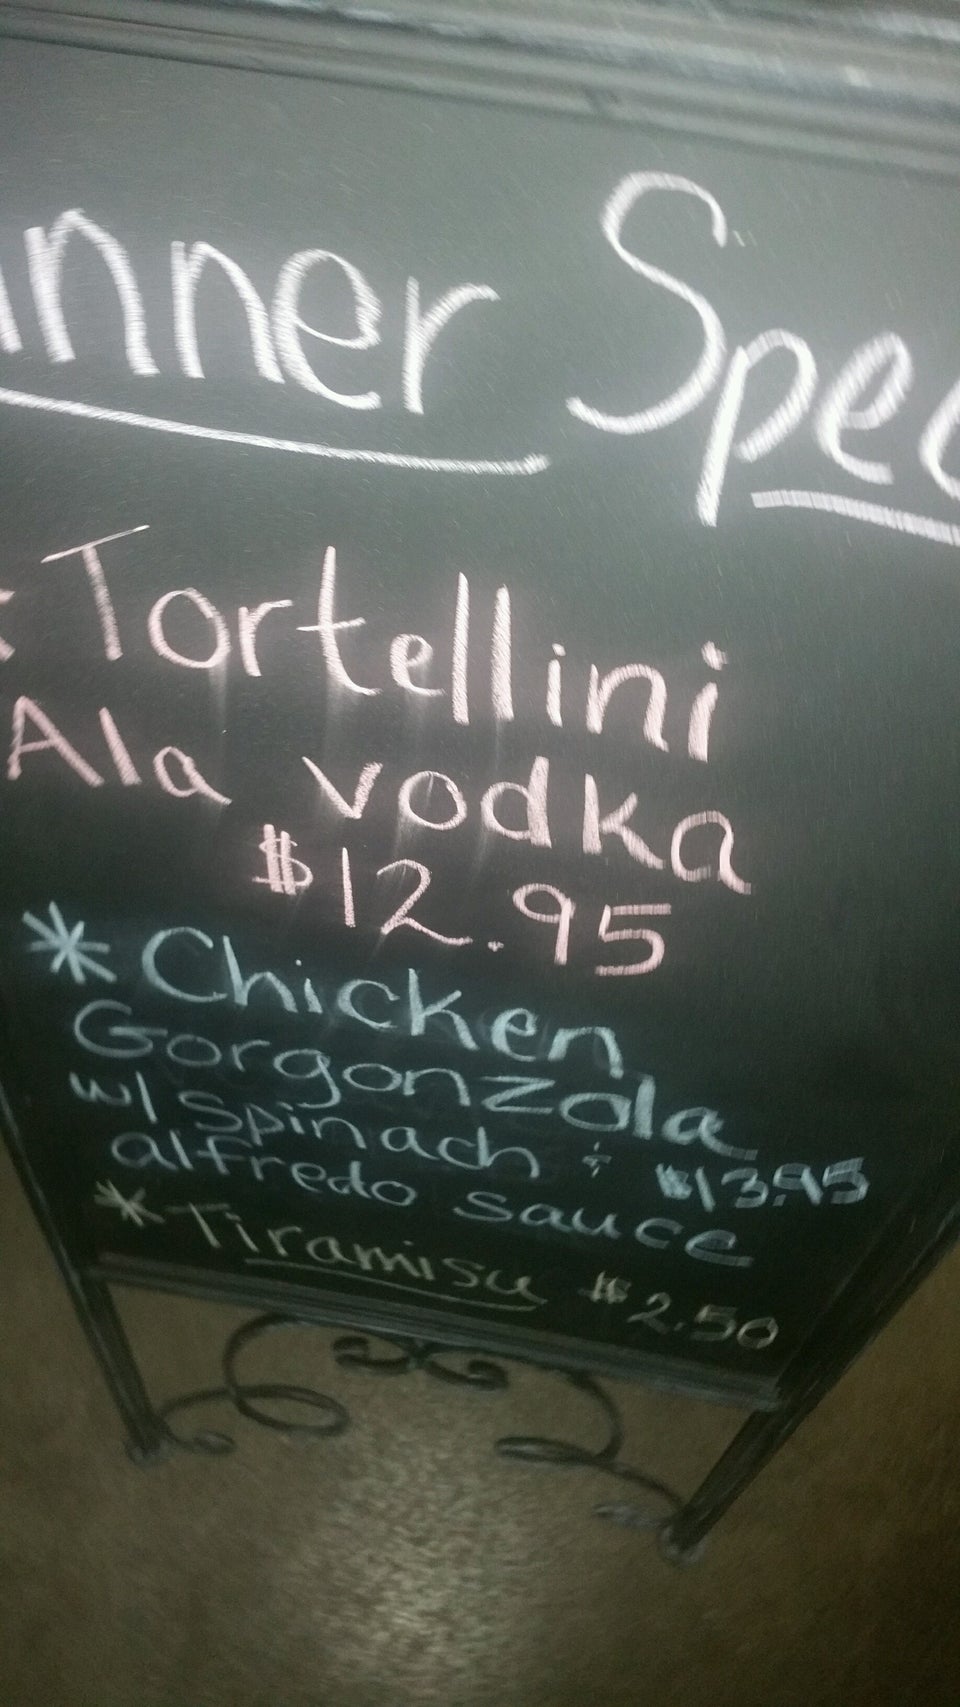 inner Spec
* Tortellini
Ala vodka
$12.95
* Chicken
Gorgonzola
w/ spinach + $13.95
alfredo sauce
* Tiramisu $2.50